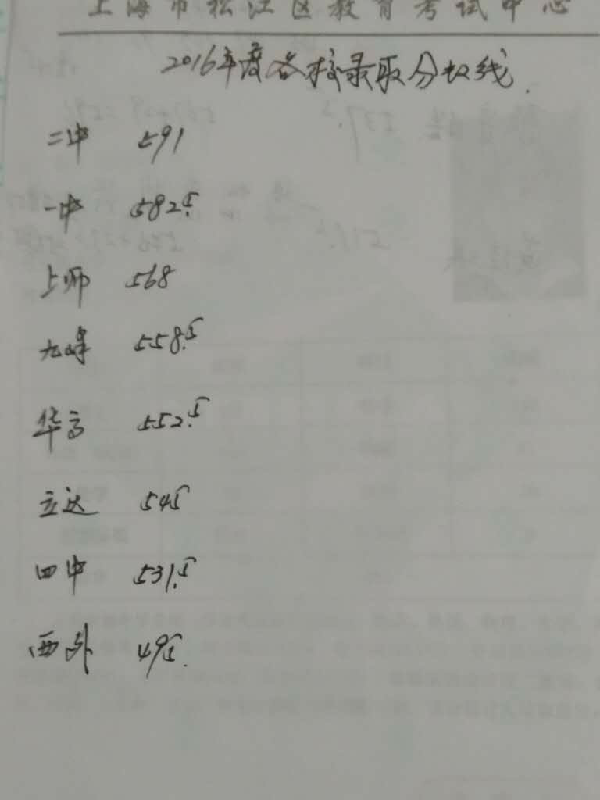 上海市松江区教育考试中心
2016年度各校录取分数线.
二中 591
一中 582.5
上师 568
九峰 558.5
华高 552.5
立达 545
四中 531.5
西外 495.